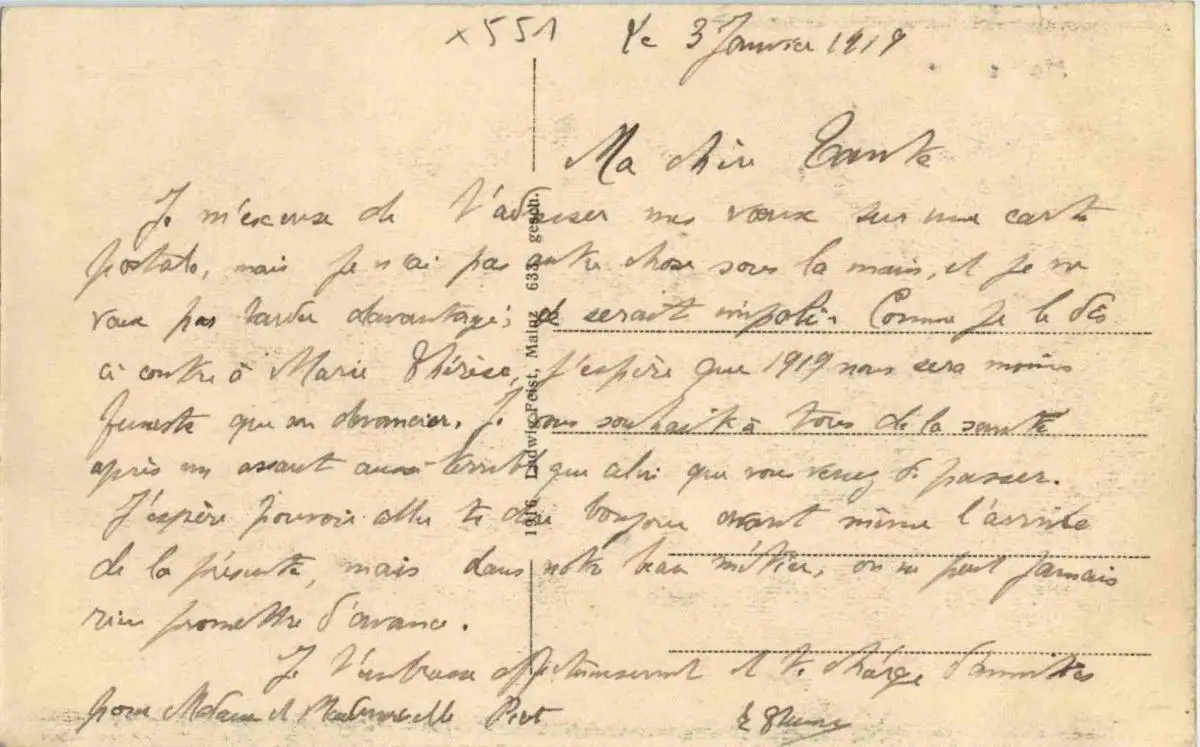 x551 Le 3 Janvier 1919
Ma chère Tante
Je m'excuse de t'adresser mes vœux sur une carte
postale, mais je n'ai pas autre chose sous la main, et je ne
veux pas tarder davantage; ce serait impoli. Comme je le dis
ci contre à Marie Thérèse, j'espère que 1919 nous sera moins
funeste que son devancier. Je vous souhaite à tous de la santé
après un assaut aussi terrible que celui que vous venez de passer.
J'espère pouvoir aller te dire bonjour avant même l'arrivée
de la présente, mais dans notre beau métier, on ne peut jamais
rien promettre d'avance.
Je t'embrasse affectueusement et te charge d'amitiés
pour Madame et Mademoiselle
1916 Ludwig Feist, Mainz 633 gesch.